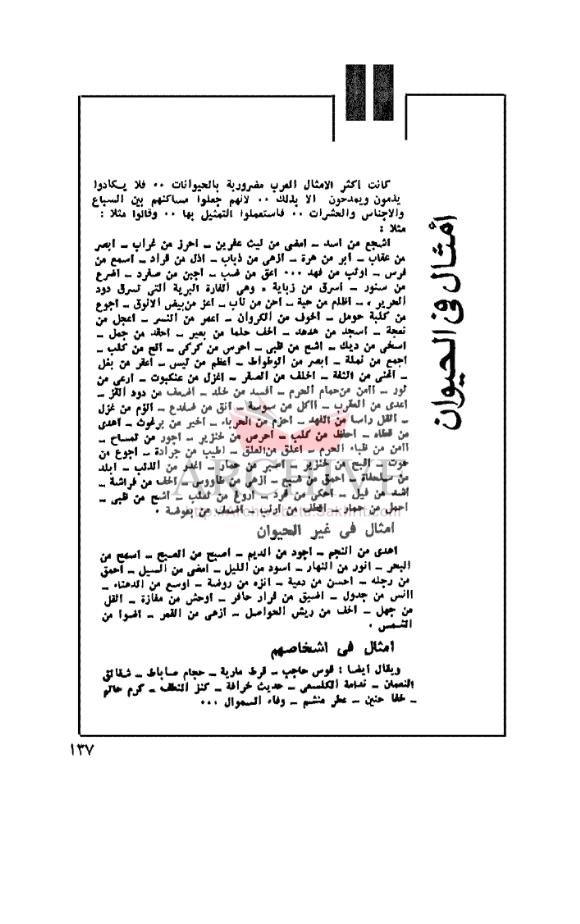 أمثال في الحيوان
كانت أكثر الأمثال العرب مضروربة بالحيوانات ٠٠ فلا يكادوا
يذمون ويمدحون الا بذلك ٠٠ لأنهم جعلوا مساكنهم بين السباع
والاجناس والحشرات ٠٠ فاستعملوا التمثيل بها ٠٠ وقالوا مثلا :
مثلا :
اشجع من اسد ــ امضى من ليث عفرين ــ احرز من غراب ــ ابصر
من عقاب ــ ابر من هرة ــ ازهى من ذباب ــ اذل من قراد ــ اسمع من
فرس ــ اوثب من فهد ٠٠٠ اعق من ضب ــ اجبن من صفرد ــ اضرع
من سنور ــ اسرق من زبابة « وهي الفارة البرية التي تسرق دود
الحرير » ــ اظلم من حية ــ احن من ناب ــ اعز من بيض الانوق ــ اجوع
من كلبة حومل ــ اخوف من الكروان ــ اعمر من النسر ــ اعجل من
نعجة ــ اسجد من هدهد ــ اخف حلما من بعير ــ احقد من جمل ــ
اسخى من ديك ــ اشح من ظبي ــ احرس من كركي ــ الح من كلب ــ
اجمع من نملة ــ ابصر من الوطواط ــ اعظم من تيس ــ اعقر من بغل
ــ اغنى من التفة ــ اخلف من الصقر ــ اغزل من عنكبوت ــ ارعى من
ثور ــ اامن من حمام الحرم ــ افسد من خلد ــ اضعف من دود القز ــ
اعدى من العقرب ــ ااكل من سوسة ــ انق من ضفدع ــ الوم من غزل
ــ اثقل راسا من الفهد ــ احزم من الحرباء ــ اخير من برغوث ــ اهدى
من قطاه ــ احفظ من كلب ــ احرص من خنزير ــ اجور من تمساح ــ
اامن من ظباء الحرم ــ اعلق من العلق ــ اطيب من جرادة ــ اجوع من
حوت ــ اقبح من خنزير ــ اصبر من حمار ــ اغدر من الذئب ــ ابلد
من سلحفاة ــ احمق من ضبع ــ ازهى من طاووس ــ اخف من فراشة ــ
اشد من فيل ــ احكى من قرد ــ اروغ من ثعلب ــ اشح من ظبي ــ
اجهل من حمار ــ اقطف من ارنب ــ اضعف من بعوضة ٠
امثال في غير الحيوان
اهدى من النجم ــ اجود من الديم ــ اصبح من الصبح ــ اسمح من
البحر ــ انور من النهار ــ اسود من الليل ــ امضى من السيل ــ احمق
من رجله ــ احسن من دمية ــ انزه من روضة ــ اوسع من الدهناء ــ
اانس من جدول ــ اضيق من قرار حافر ــ اوحش من مفازة ــ اثقل
من جهل ــ اخف من ريش الحواصل ــ ازهى من القمر ــ اضوا من
الشمس ٠
امثال في اشخاصهم
ويقال ايضا : قوس حاجب ــ قرط مارية ــ حجام ساباط ــ شقائق
النعمان ــ ندامة الكسعي ــ حديث خرافة ــ كنز النطف ــ كرم حاتم
ــ خفا حنين ــ عطر منشم ــ وفاء السموال ٠٠٠
ARCHIVE
١٣٧